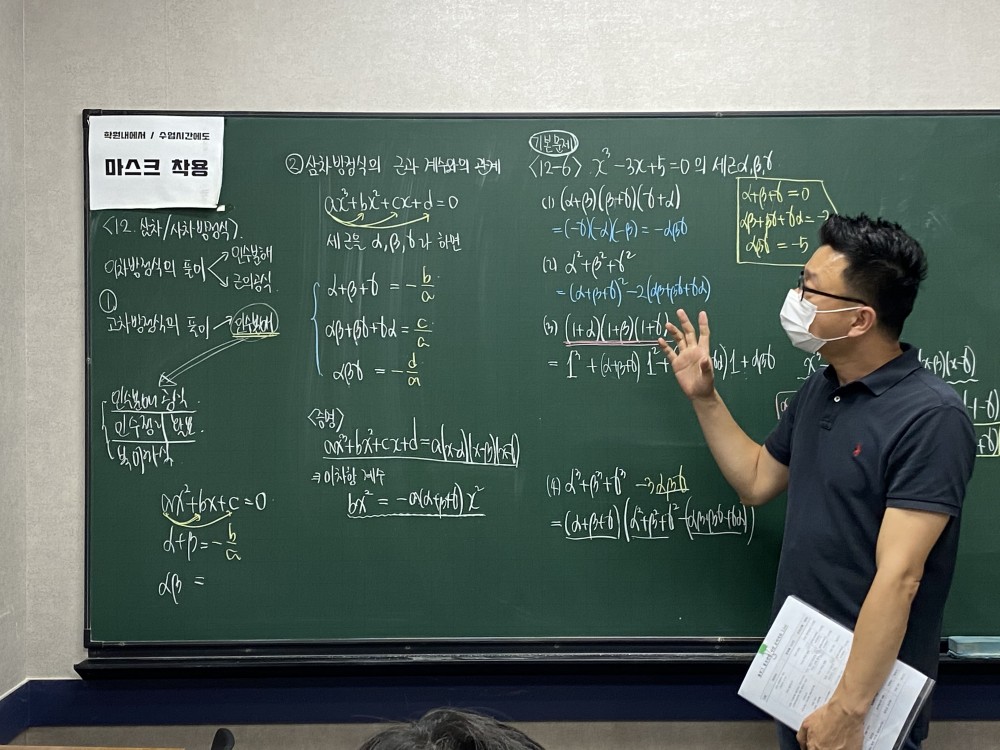 학원내에서 / 수업시간에도
마스크 착용
<12. 삼차/사차방정식>
이차방정식의 풀이 인수분해
근의공식
①
고차방정식의 풀이 → 인수분해
인수분해 공식
인수정리
복이차식
ax²+bx+c=0
α+β=-b/a
αβ =
② 삼차방정식의 근과 계수와의 관계
ax³+bx²+cx+d=0
세 근을 α,β,γ라 하면
α+β+γ = -b/a
αβ+βγ+γα = c/a
αβγ = -d/a
<증명>
ax³+bx²+cx+d=a(x-α)(x-β)(x-γ)
⇒이차항 계수
bx² = -a(α+β+γ)x²
기본문제
<12-6> x³-3x+5=0의 세근α,β,γ
α+β+γ=0
αβ+βγ+γα=-
αβγ=-5
(1) (α+β)(β+γ)(γ+α)
=(-γ)(-α)(-β)=-αβγ
(2) α²+β²+γ²
=(α+β+γ)²-2(αβ+βγ+γα)
(3) (1+α)(1+β)(1+γ)
= 1³+(α+β+γ)1²+ 1+αβγ
(4) α³+β³+γ³ -3αβγ
=(α+β+γ)(α²+β²+γ²-(αβ+βγ+γα))